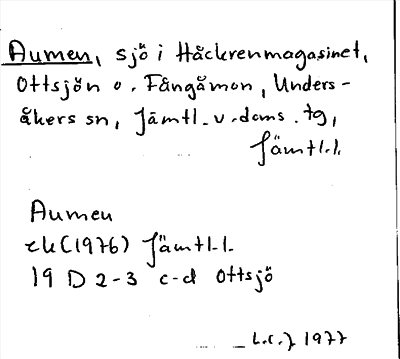 Aumen, sjö i Håckrenmagasinet,
Ottsjön o. Fångåmon, Unders-
åkers sn, Jämtl. v. doms. tg,
Jämtl.l.
Aumen
ek (1976) Jämtl.l.
19 D 2-3 c-d Ottsjö
1977